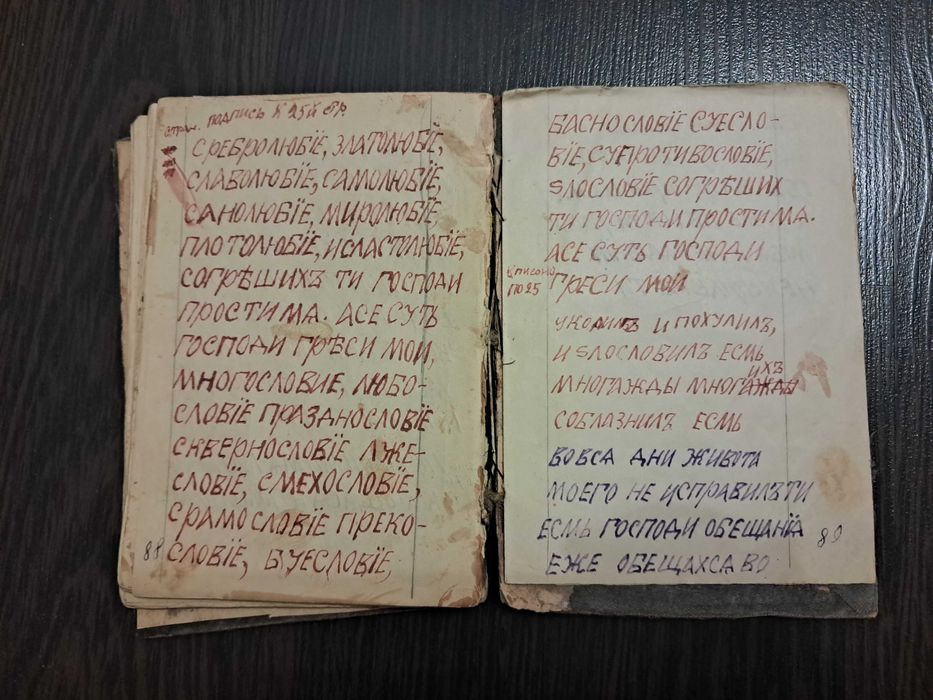 стран. подпись к 25й стр.
СРЕБРОЛЮБЇЕ, ЗЛАТОЛЮБЇЕ,
СЛАВОЛЮБЇЕ, САМОЛЮБЇЕ,
САНОЛЮБЇЕ, МИРОЛЮБЇЕ,
ПЛОТОЛЮБЇЕ, ИСЛАСТОЛЮБЇЕ,
СОГРѢШИХЪ ТИ ГОСПОДИ
ПРОСТИ МА. АСЕ СУТЬ
ГОСПОДИ ГРѢСИ МОИ,
МНОГОСЛОВИЕ, ЛЮБО-
СЛОВЇЕ ПРАЗДНОСЛОВЇЕ
СКВЕРНОСЛОВЇЕ ЛЖЕ-
СЛОВЇЕ, СМЕХОСЛОВЇЕ,
СРАМОСЛОВЇЕ ПРЕКО-
СЛОВЇЕ, БУЕСЛОВЇЕ,
88
БАСНОСЛОВЇЕ СУЕСЛО-
ВЇЕ, СУПРОТИВОСЛОВЇЕ,
ЅЛОСЛОВЇЕ СОГРѢШИХ
ТИ ГОСПОДИ ПРОСТИ МА.
АСЕ СУТЬ ГОСПОДИ
ГРЕСИ МОИ
по 25
УКОРИЛЪ И ПОХУЛИЛЪ,
И ЅЛОСЛОВИЛЪ ЕСМЬ
ИХЪ
МНОГАЖДЫ МНОГАЖДЫ
СОБЛАЗНИЛЪ ЕСМЬ
ВО ВСА ДНИ ЖИВОТА
МОЕГО НЕ ИСПРАВИЛЪ ТИ
ЕСМЬ ГОСПОДИ ОБЕЩАНЇА
ЕЖЕ ОБЕЩАХСА ВО
89